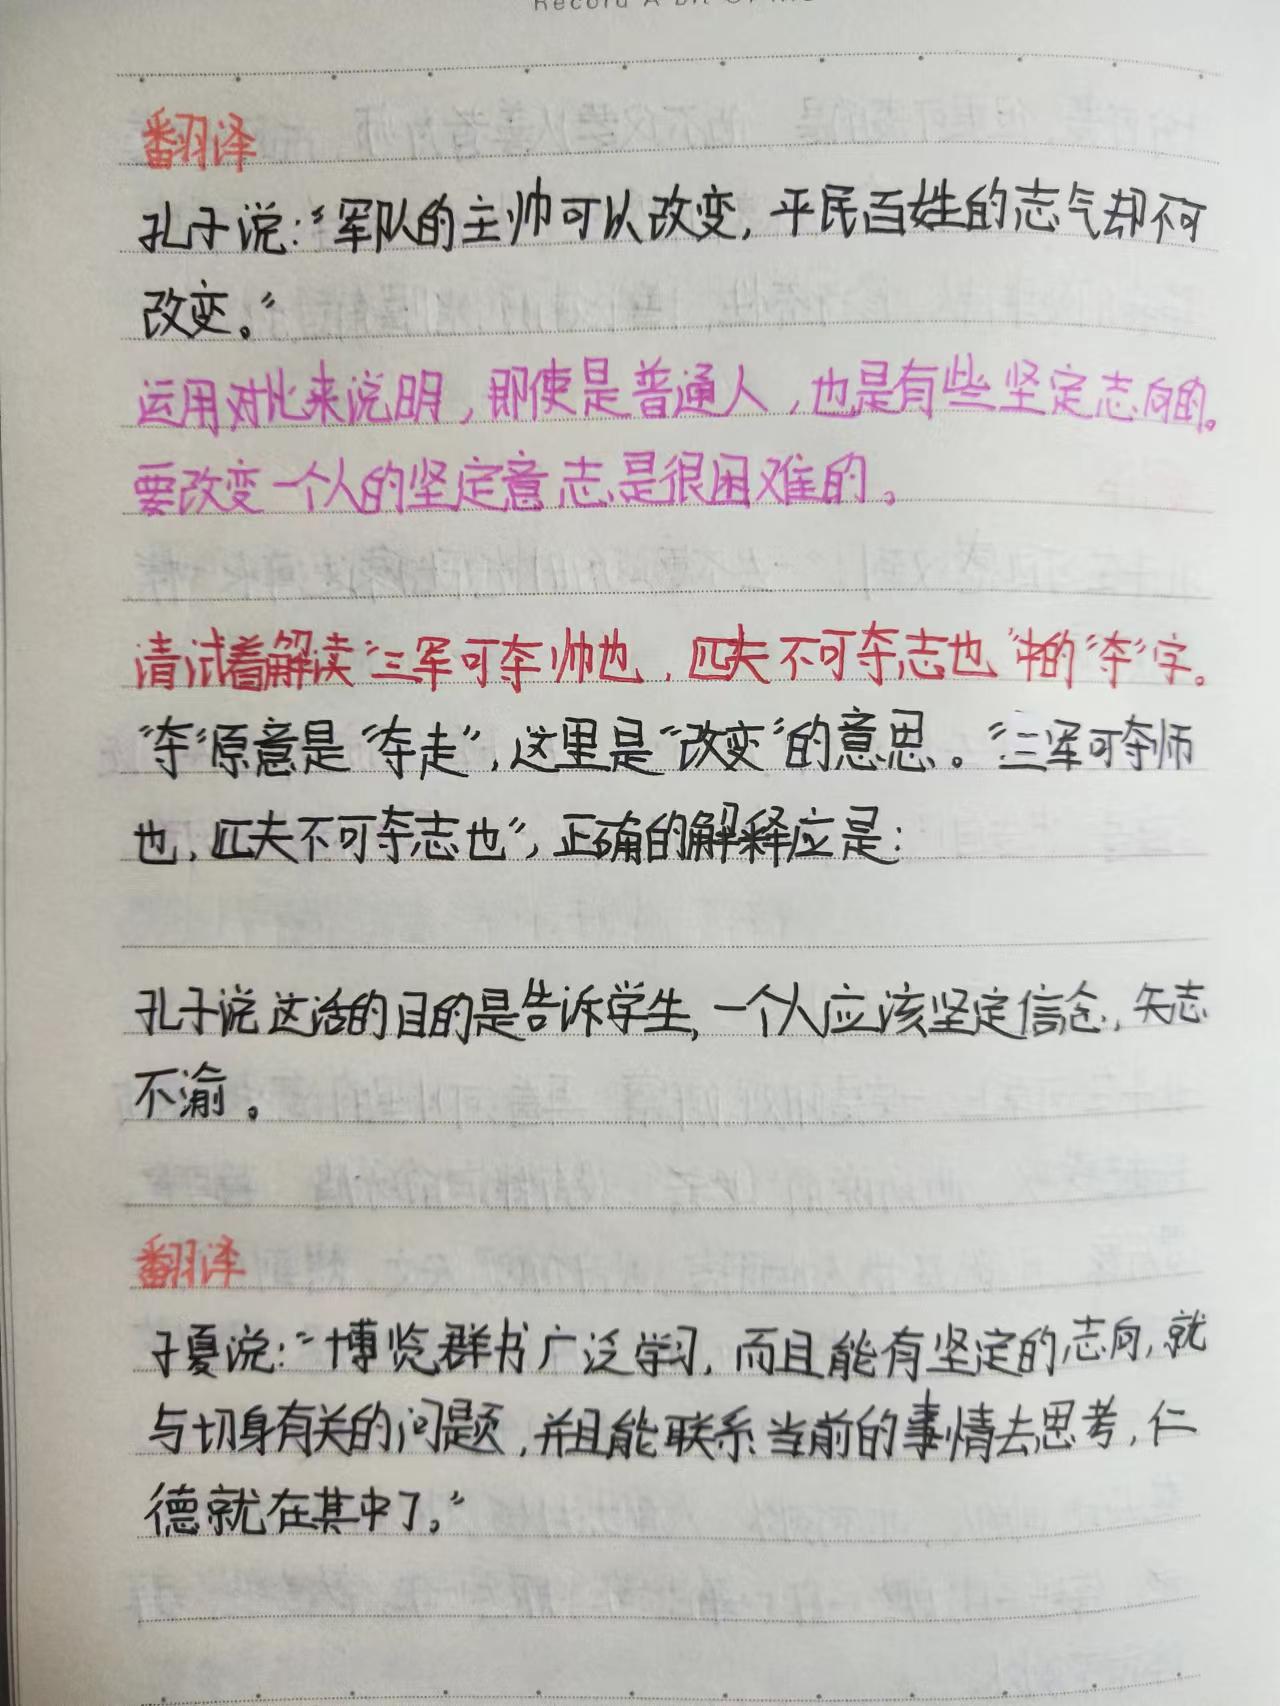 Record A
翻泽
孔子说:“军队的主帅可以改变,平民百姓的志气却不可
改变。”
运用对比来说明,即使是普通人,也是有些坚定志向的。
要改变一个人的坚定意志是很困难的。
清试着解读“三军可夺帅也,匹夫不可夺志也”中的“夺”字。
“夺”原意是“夺走”,这里是“改变”的意思。“三军可夺师
也,匹夫不可夺志也”,正确的解释应是:
孔子说这话的目的是告诉学生,一个人应该坚定信念,矢志
不渝。
翻泽
子夏说:“博览群书广泛学习,而且能有坚定的志向,就
与切身有关的问题,并且能联系当前的事情去思考,仁
德就在其中了。”